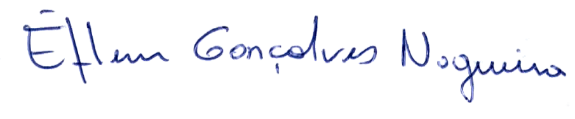 Éflem Gonçalves Nogueira